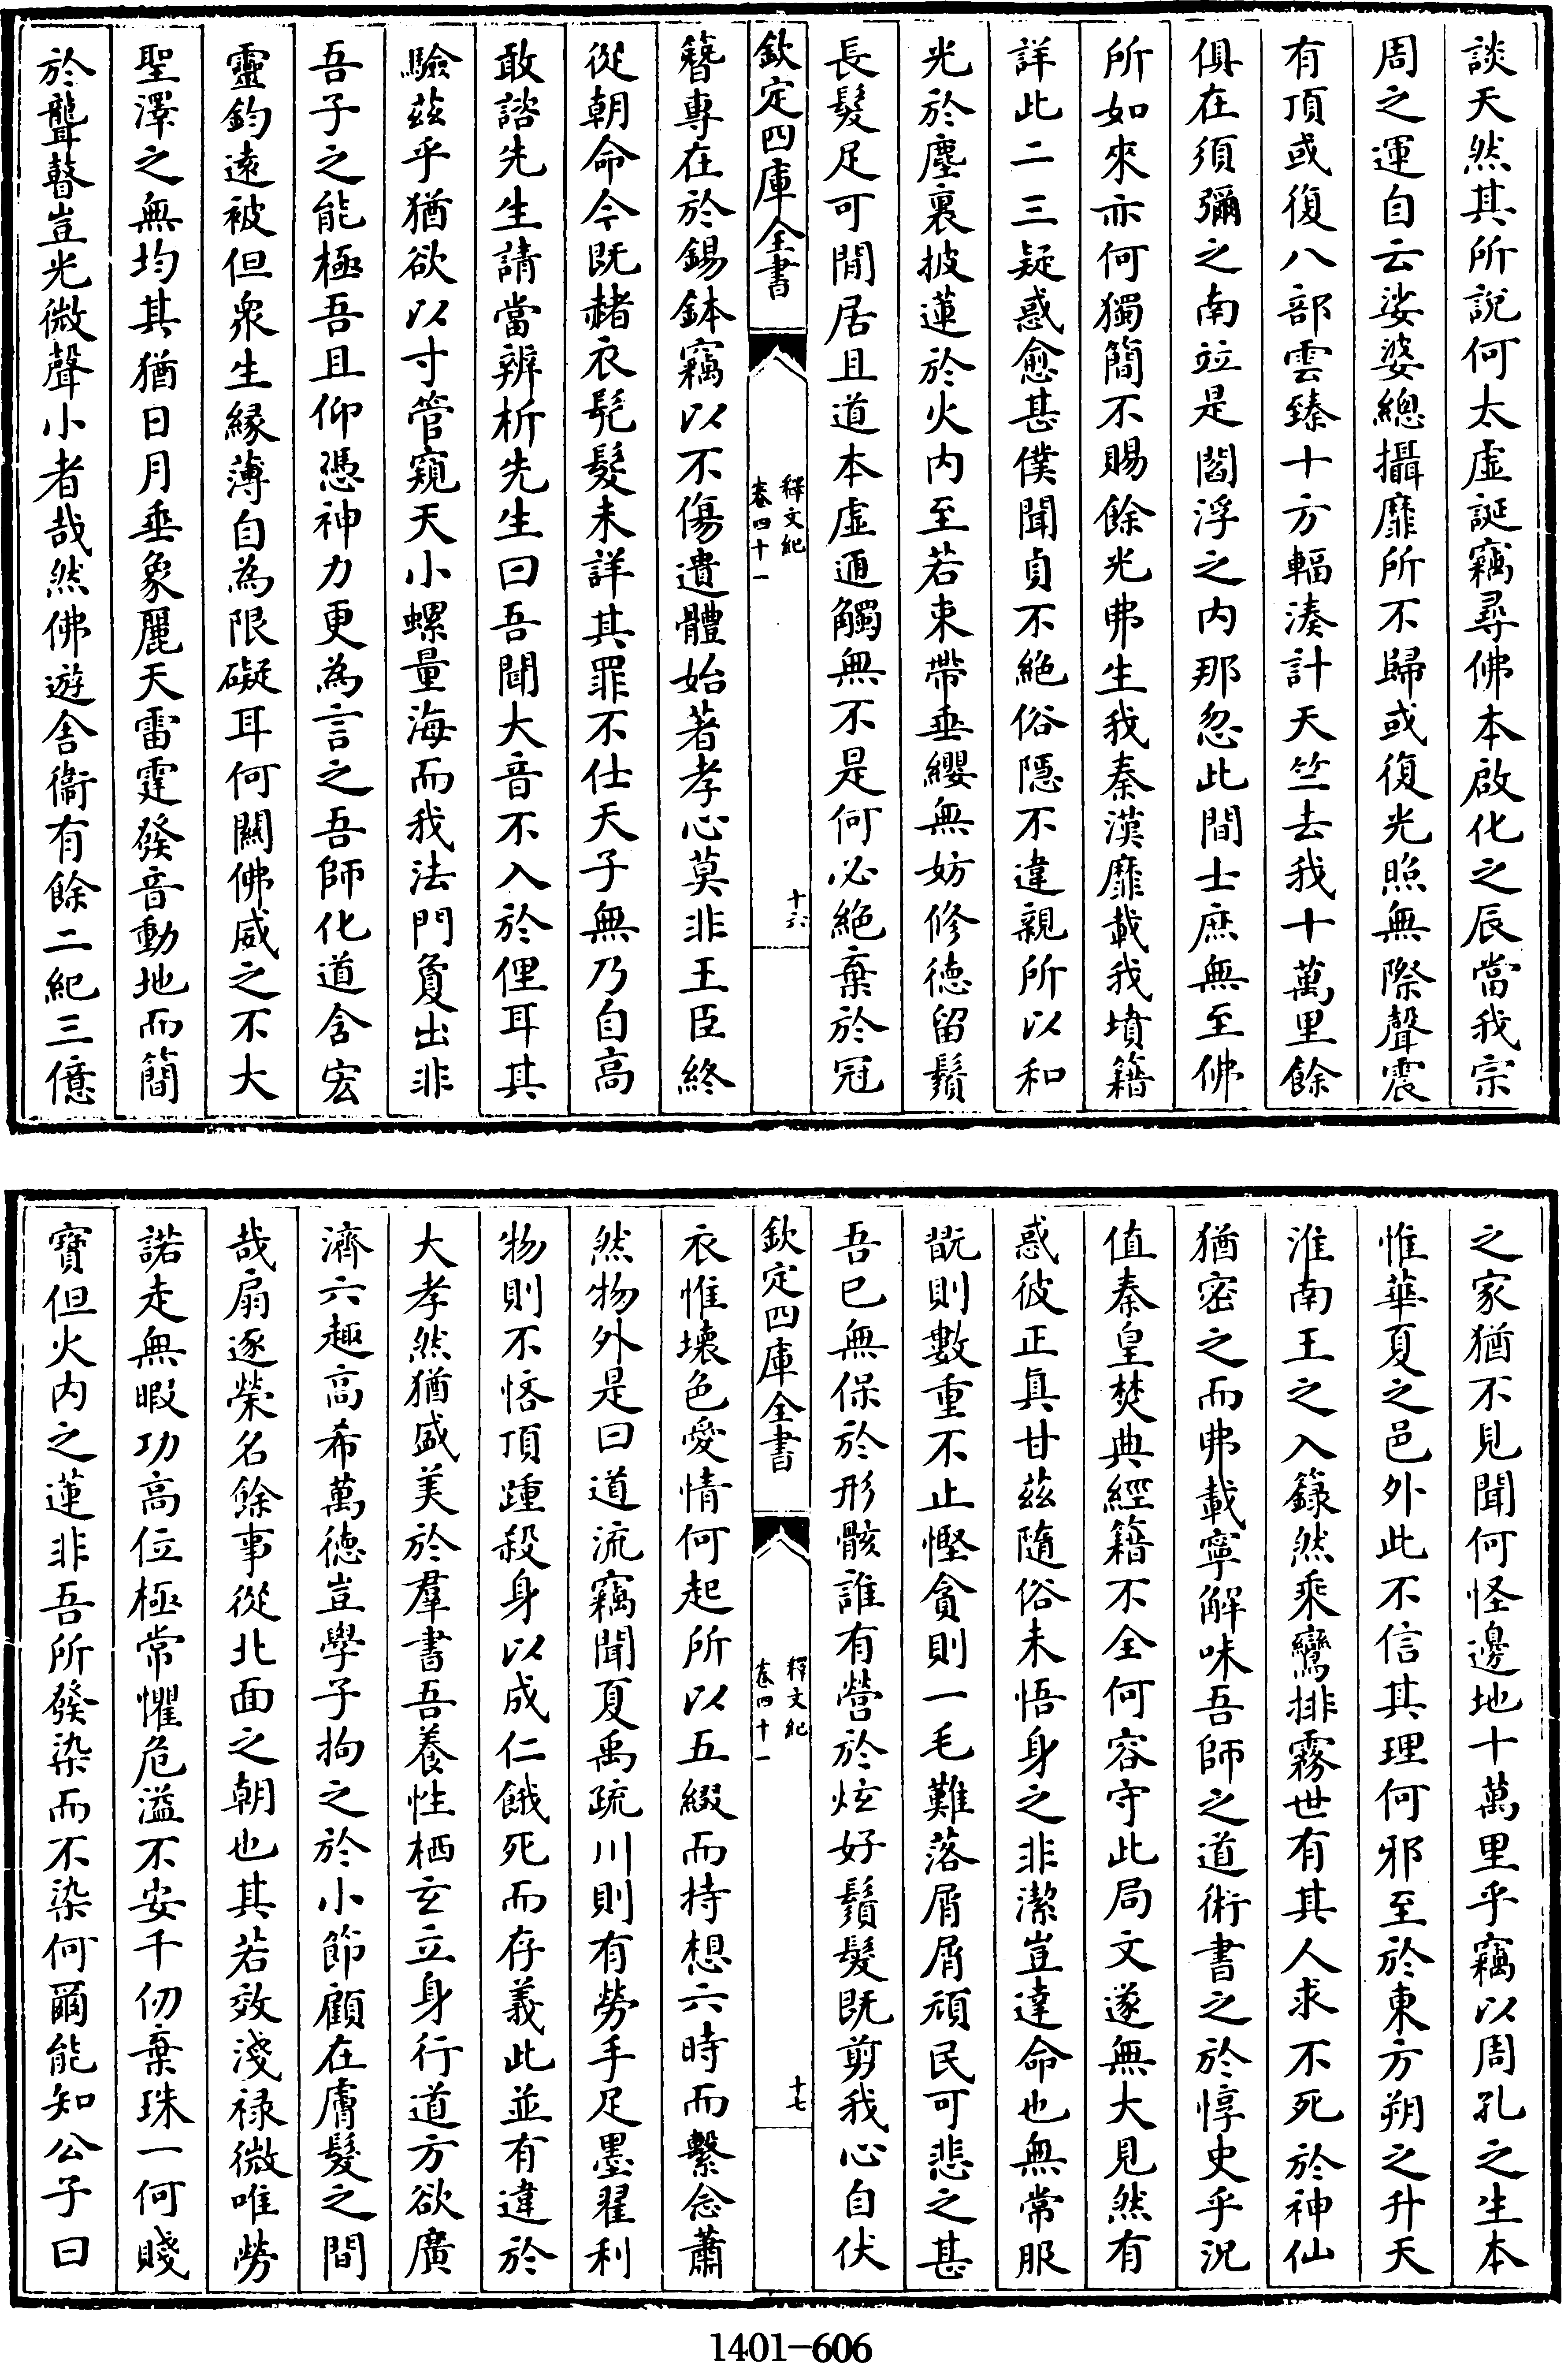 談天然其所說何太虛誕竊尋佛本啟化之辰當我宗
周之運自云娑婆總攝靡所不歸或復光照無際聲震
有頂或復八部雲臻十方輻湊計天竺去我十萬里餘
俱在須彌之南竝是閻浮之内那忽此間士庶無至佛
所如來亦何獨簡不賜餘光弗生我秦漢靡載我墳籍
詳此二三疑惑愈甚僕聞貞不絶俗隱不違親所以和
光於塵裏披蓮於火内至若束帶垂纓無妨修德留鬚
長髮足可閒居且道本虛通觸無不是何必絶棄於冠
欽定四庫全書
釋文紀
卷四十一
十六
簪專在於錫鉢竊以不傷遺體始著孝心莫非王臣終
從朝命今既赭衣髠髮未詳其罪不仕天子無乃自高
敢諮先生請當辨析先生曰吾聞大音不入於俚耳其
驗茲乎猶欲以寸管窺天小螺量海而我法門敻出非
吾子之能極吾且仰憑神力更為言之吾師化道含宏
靈鈞遠被但衆生緣薄自為限礙耳何關佛威之不大
聖澤之無均其猶日月垂象麗天雷霆發音動地而簡
於聾瞽豈光微聲小者哉然佛遊舍衞有餘二紀三億
之家猶不見聞何怪邊地十萬里乎竊以周孔之生本
惟華夏之邑外此不信其理何邪至於東方朔之升天
淮南王之入籙然乘鸞排霧世有其人求不死於神仙
猶密之而弗載寧解味吾師之道術書之於惇史乎況
值秦皇焚典經籍不全何容守此局文遂無大見然有
惑彼正真甘茲隨俗未悟身之非潔豈達命也無常服
翫則數重不止慳貪則一毛難落屑屑頑民可悲之甚
吾已無保於形骸誰有營於炫好鬚髮既剪我心自伏
欽定四庫全書
釋文紀
卷四十一
十七
衣惟壞色愛情何起所以五綴而持想六時而繫念蕭
然物外是曰道流竊聞夏禹疏川則有勞手足墨翟利
物則不恡頂踵殺身以成仁餓死而存義此並有違於
大孝然猶盛美於羣書吾養性栖玄立身行道方欲廣
濟六趣高希萬德豈學子拘之於小節顧在膚髮之間
哉扇逐榮名餘事從北面之朝也其若效淺禄微唯勞
諾走無暇功高位極常懼危溢不安千仞棄珠一何賤
寶但火内之蓮非吾所發染而不染何爾能知公子曰
1401-606